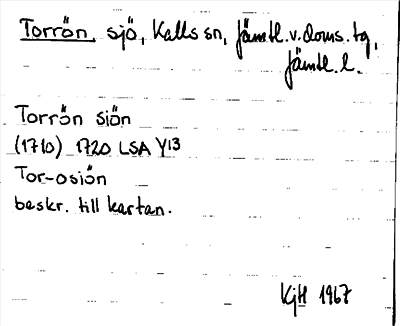 Torrön, sjö, Kalls sn, Jämtl.v.doms.tg,
Jämtl.l.
Torrön siön
(1710) 1720 LSA Y13
Tor-osiön
beskr. till kartan.
KjH 1967